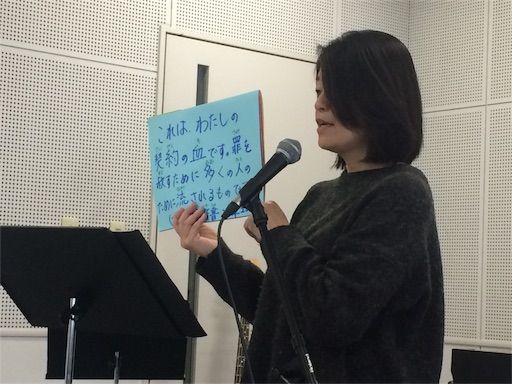 これは、わたしの
契約の血です。罪を
赦すために多くの人の
ために流されるもので